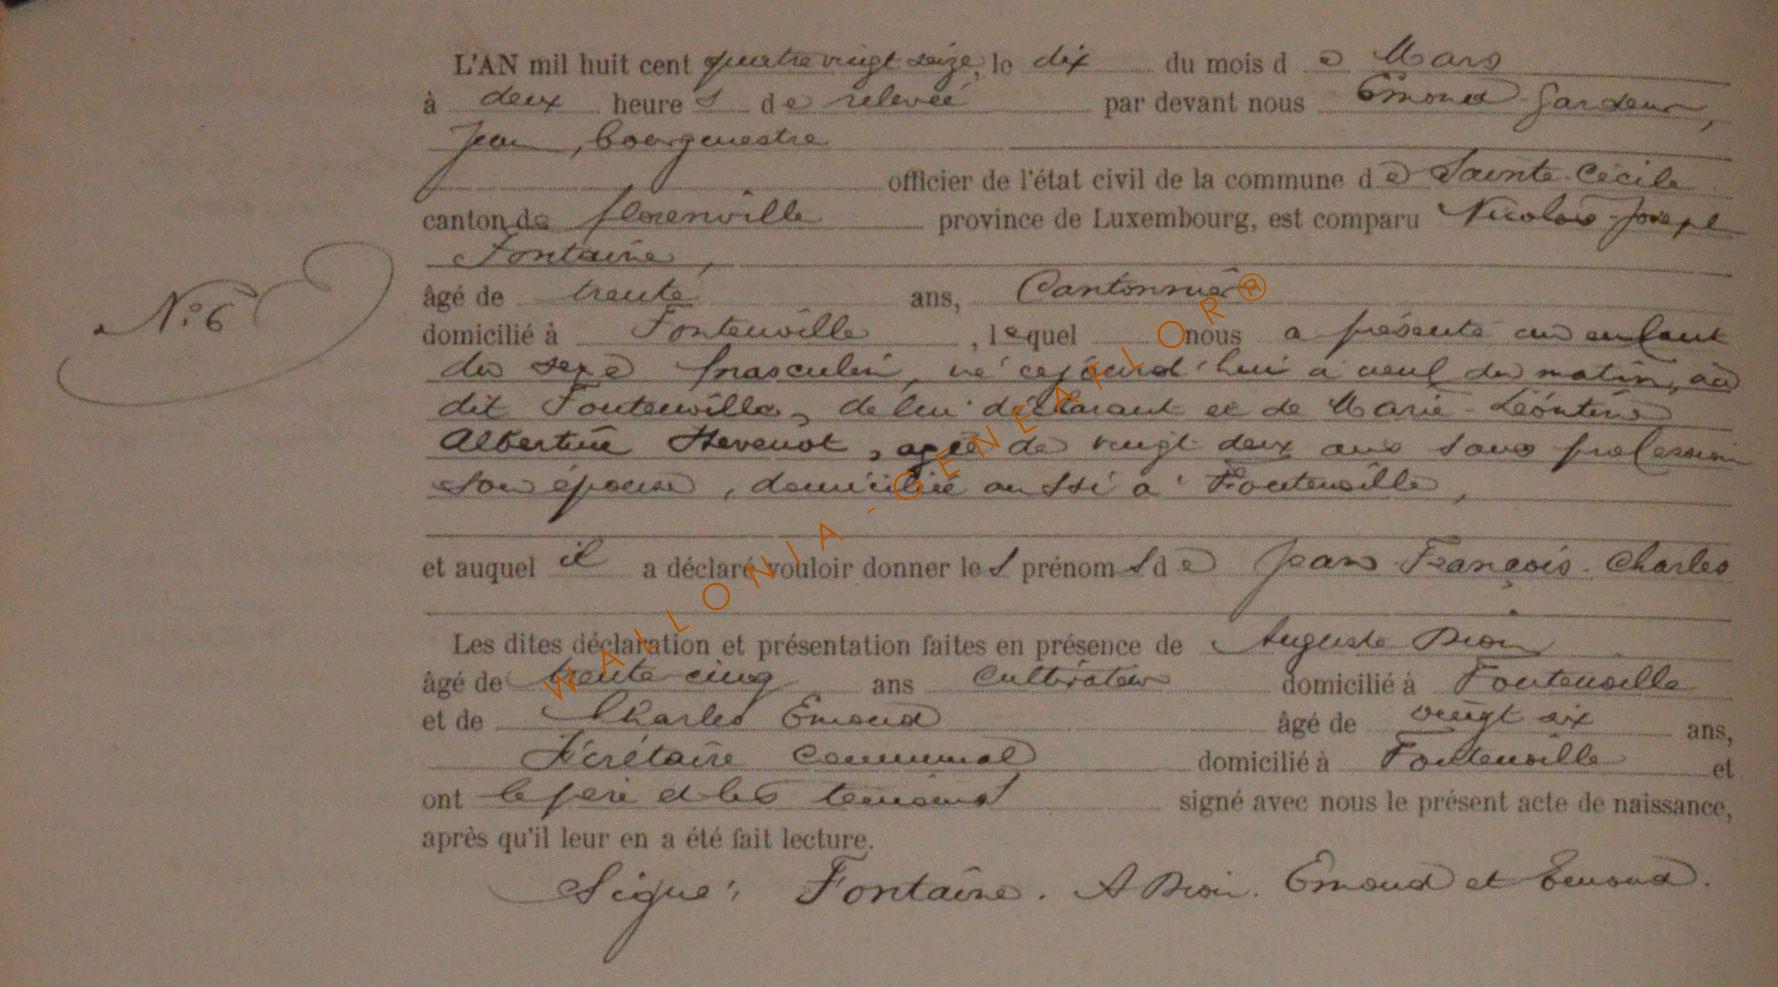 L'AN mil huit cent quatre vingt seize, le dix du mois d e Mars
à deux heure s de relevée par devant nous Emond Gardeur,
Jean, bourgmestre
officier de l'état civil de la commune d e Sainte-Cécile
canton de florenville province de Luxembourg, est comparu Nicolas-Joseph
Fontaine,
N° 6
âgé de trente ans, Cantonnier
domicilié à Fontenoille, lequel nous a présenté un enfant
du sexe masculin, né cejourd'hui à neuf du matin, au
dit Fontenoille, de lui déclarant et de Marie-Léontine
Albertine Hevenot, agée de vingt deux ans sans profession
son épouse, domiciliée aussi à Fontenoille,
et auquel il a déclaré vouloir donner les prénoms de Jean-François-Charles
Les dites déclaration et présentation faites en présence de Auguste
âgé de trente-cinq ans Cultivateur domicilié à Fontenoille
et de Charles Emond âgé de vingt six ans,
Sécrétaire communal domicilié à Fontenoille et
ont le père et les témoins signé avec nous le présent acte de naissance,
après qu'il leur en a été fait lecture.
Signé: Fontaine. A Emond et Emond.
WALLONIA-GENEAFLOR®